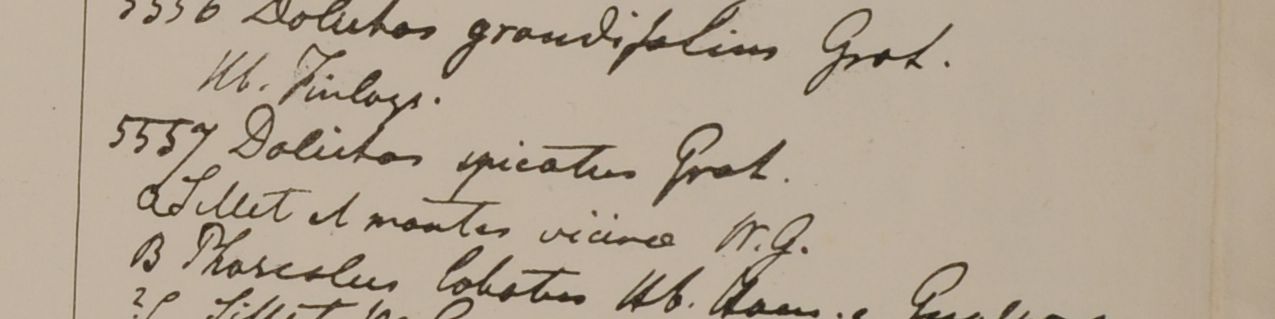 5556 Dolichos grandifolius Grah.
Hb. Finlays.
5557 Dolichos spicatus Grah.
a Sillet et montes vicinae W.G.
B Phaseolus lobatus Hb. Ham. e
? Sillet